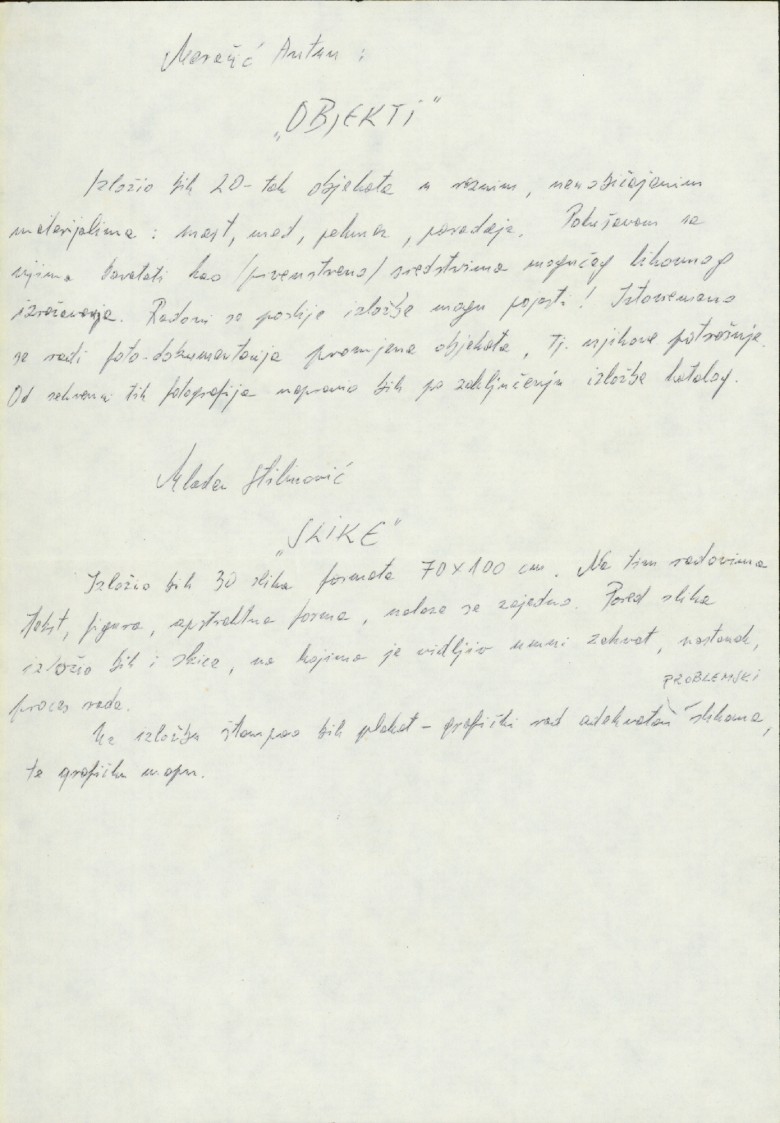 Maračić Antun :
„OBJEKTI"
Izložio bih 20-tak objekata u raznim, neuobičajenim
materijalima : mast, med, pekmez, paradajz. Pokušavam sa
njima baratati kao /prvenstveno/ sredstvima mogućeg likovnog
izražavanja. Radovi se poslije izložbe mogu pojesti! Istovremeno
se radi foto-dokumentacija promjena objekata, tj. njihove potrošnje.
Od sekvenci tih fotografija napravio bih po zaključenju izložbe katalog.
Mladen Stilinović
„SLIKE"
Izložio bih 30 slika formata 70×100 cm. Na tim radovima
tekst, figura, apstraktna forma, nalaze se zajedno. Pored slika
izložio bih i skice, na kojima je vidljiv umni zahvat, nastanak,
PROBLEMSKI
proces rada.
Uz izložbu štampao bih plakat - grafički rad adekvatan slikama,
te grafičku mapu.